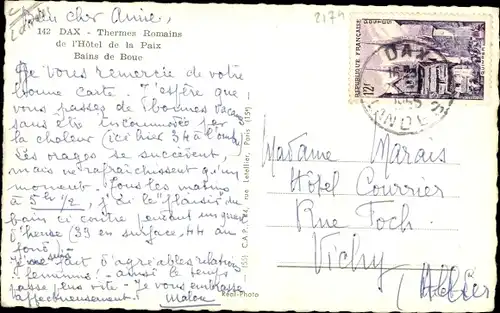 Bien cher Annie,
142 DAX - Thermes Romains
de l'Hôtel de la Paix
Bains de Boue
Je vous remercie de votre
bonne carte. J'espère que
vous passez de bonnes vacances
sans être incommodée par
la chaleur (ici hier 34 à l'ombre
Les orages se succèdent,
mais ne rafraîchissent qu'un
moment. Tous les matins
à 5 h 1/2, j'ai le "plaisir" du
bain ci contre pendant un quart
d'heure (39 en surface, 44 au
fond).
Je me suis fait d'agréables relations
féminines - ainsi le temps
passe plus vite - Je vous embrasse
affectueusement. Malou
C.A.P. rue Letellier, Paris (15e)
Réel-Photo
REPUBLIQUE FRANÇAISE
POSTES
12f
QUIMPER
DAX
LANDES
Madame Marais
Hôtel Courrier
Rue Foch
Vichy
(Allier)